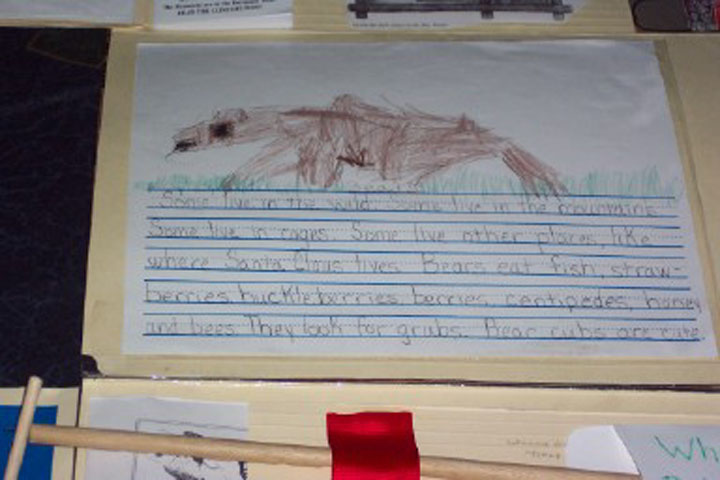 Some live in the wild. Some live in the mountains.
Some live in cages. Some live other places, like
where Santa Claus lives. Bears eat fish, straw-
berries, huckleberries, berries, centipedes, honey
and bees. They look for grubs. Bear cubs are cute.
Wh